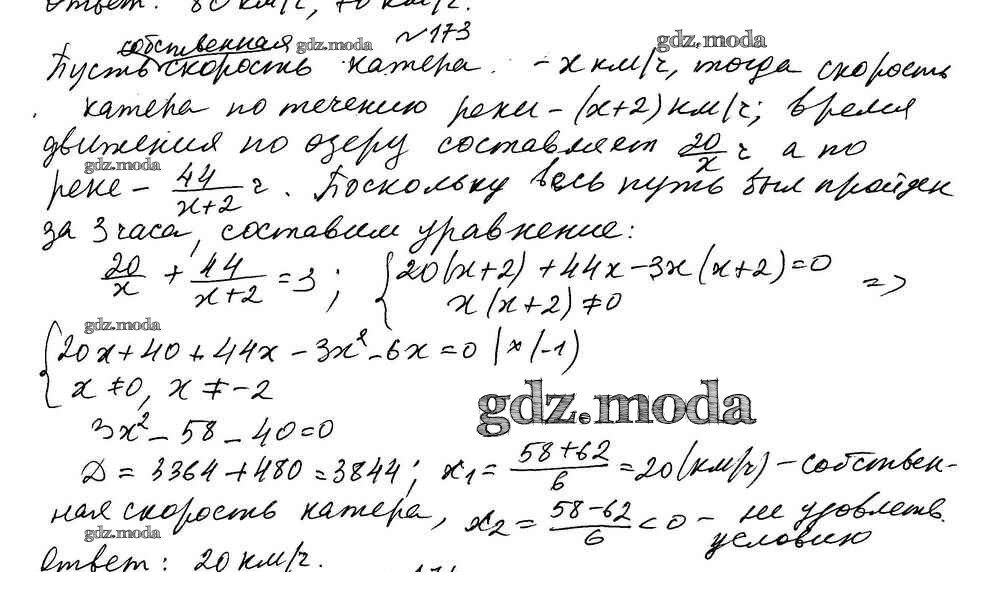 Ответ: 80 км/ч, 70 км/ч.
собственная gdz.moda №173 gdz.moda
Пусть скорость катера - x км/ч, тогда скорость
катера по течению реки - (x+2) км/ч; время
движения по озеру составляет 20/x ч а по
gdz.moda
реке - 44/x+2 ч. Поскольку весь путь был пройден
за 3 часа, составим уравнение:
20/x + 44/x+2 = 3; { 20(x+2) + 44x - 3x(x+2) = 0 =>
x(x+2) ≠ 0
gdz.moda
{ 20x + 40 + 44x - 3x² - 6x = 0 |×(-1)
x ≠ 0, x ≠ -2
gdz.moda
3x² - 58 - 40 = 0
Д = 3364 + 480 = 3844; x₁ = 58+62/6 = 20 (км/ч) - собствен-
ная скорость катера, x₂ = 58-62/6 < 0 - не удовлетв.
gdz.moda условию
Ответ: 20 км/ч.